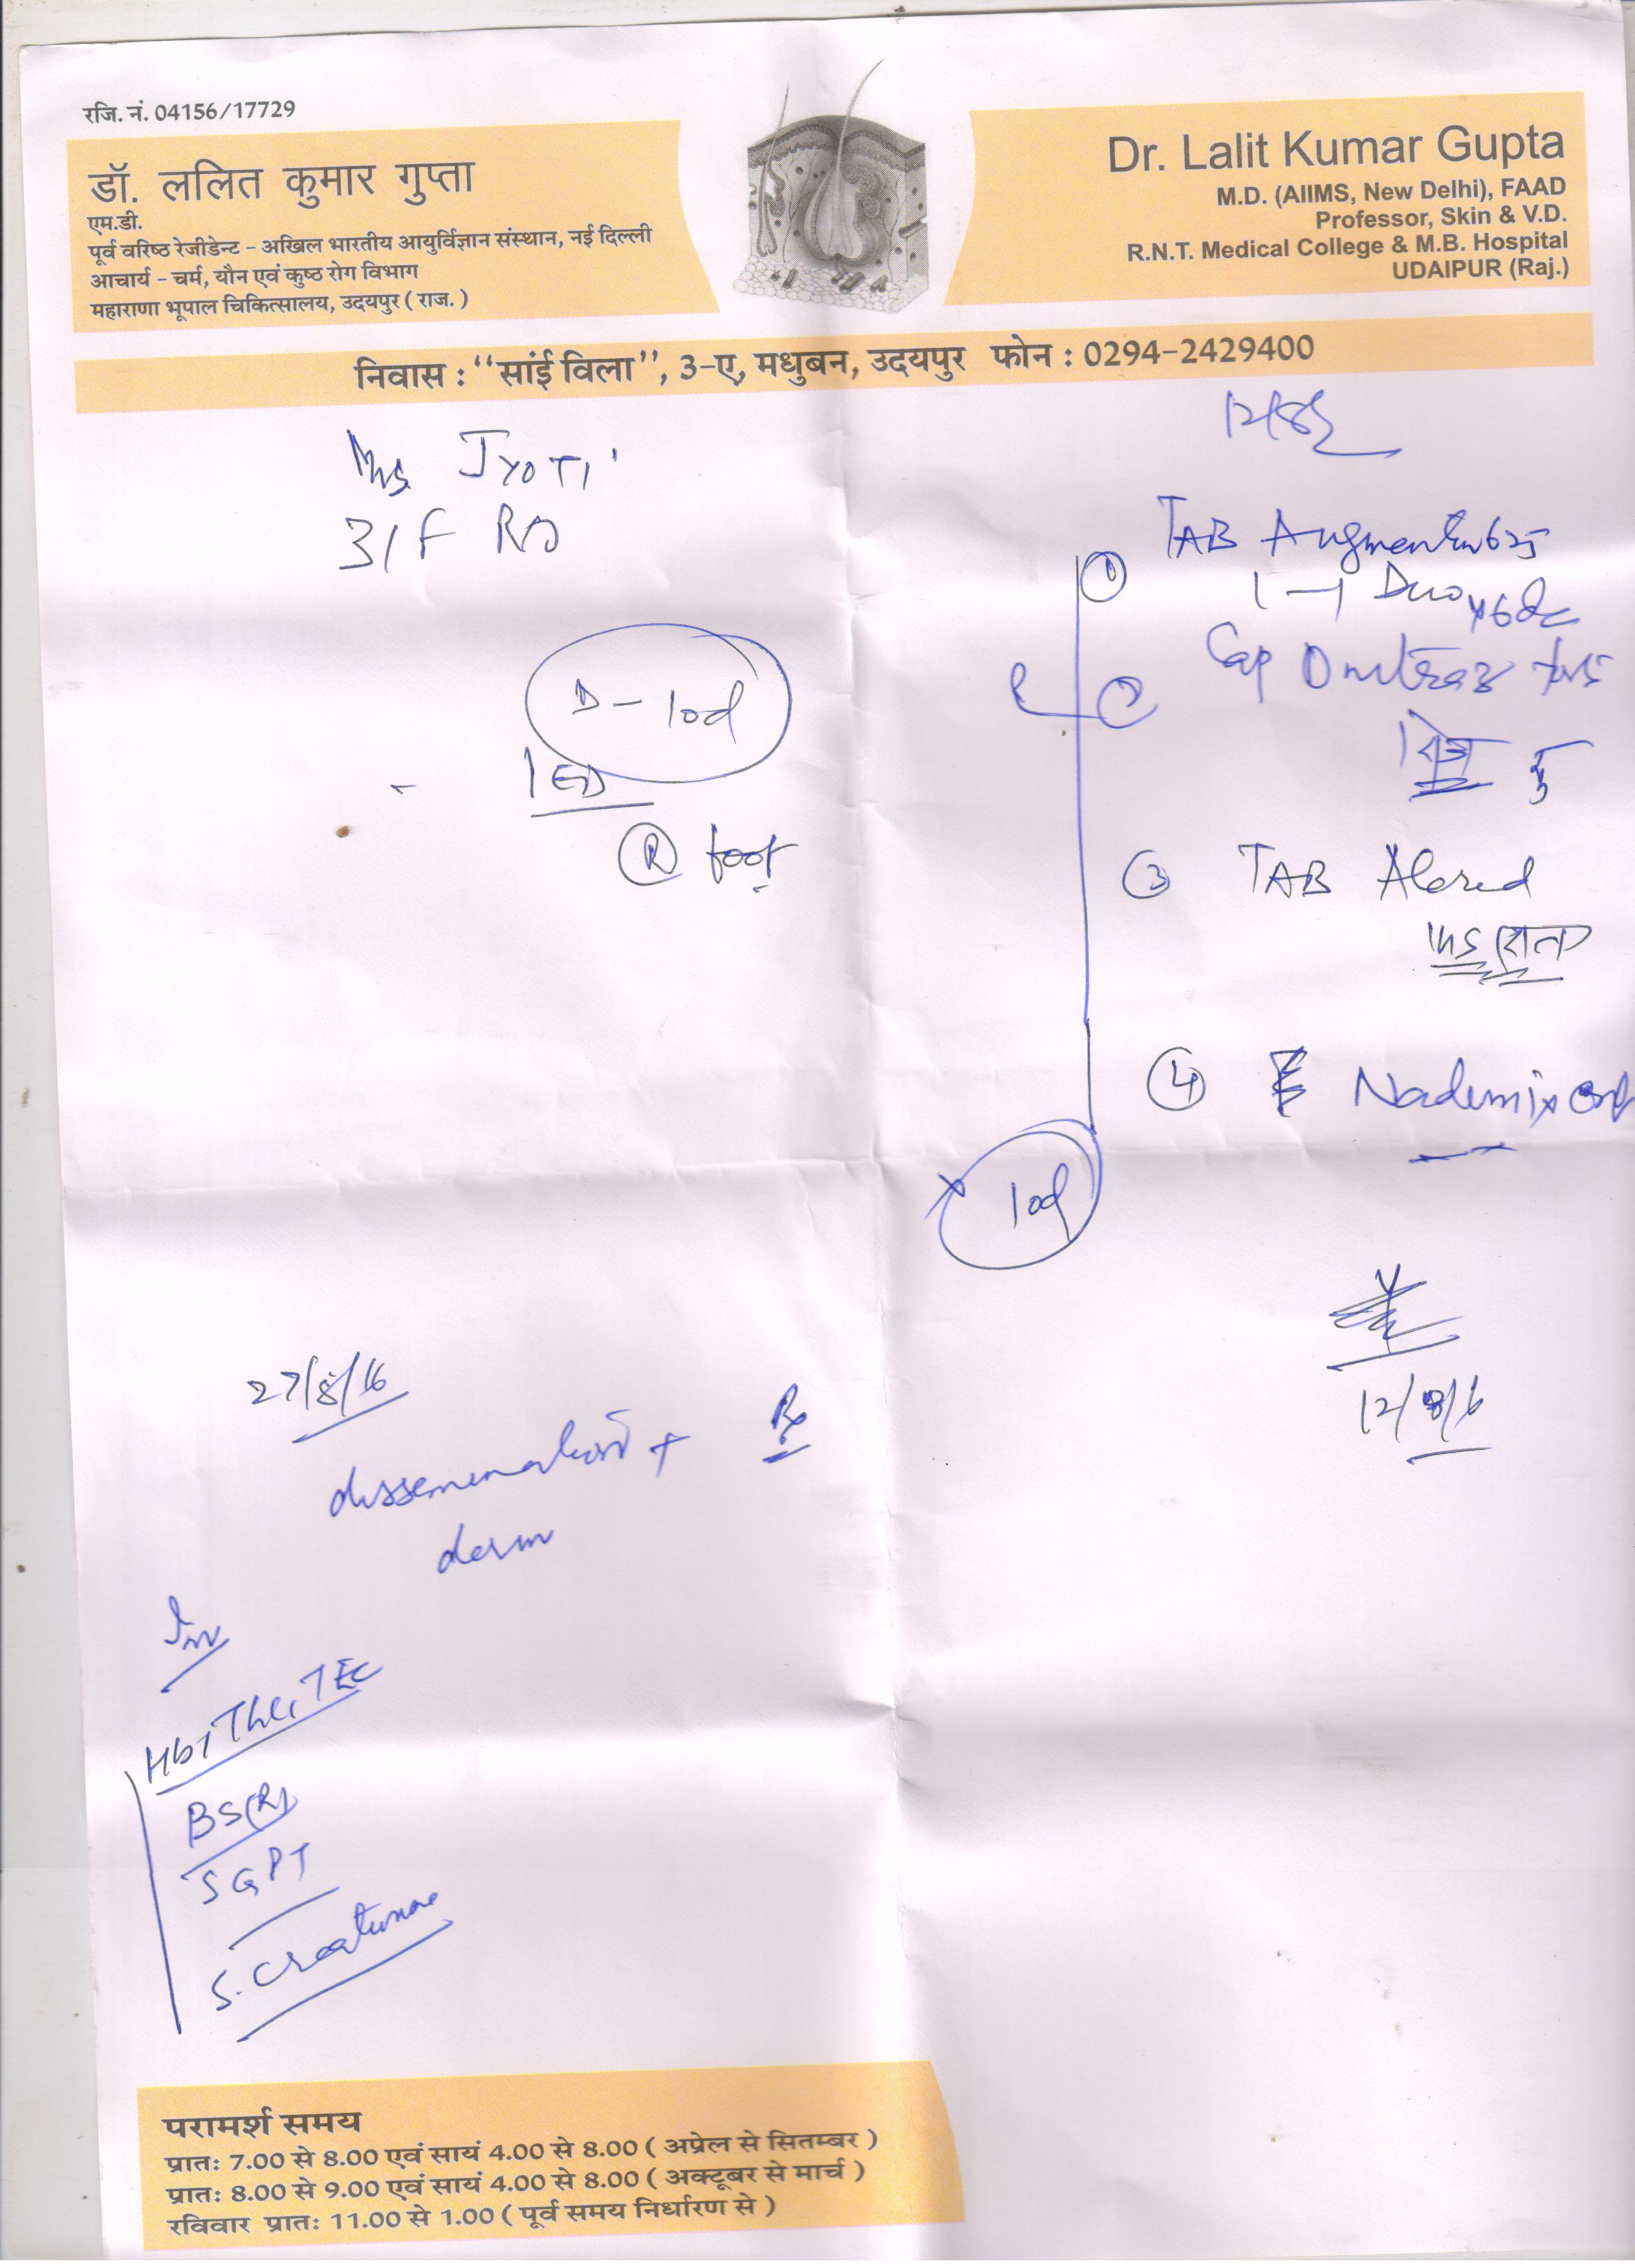 रजि. नं. 04156/17729
डॉ. ललित कुमार गुप्ता
एम.डी.
पूर्व वरिष्ठ रेजीडेन्ट - अखिल भारतीय आयुर्विज्ञान संस्थान, नई दिल्ली
आचार्य - चर्म, यौन एवं कुष्ठ रोग विभाग
महाराणा भूपाल चिकित्सालय, उदयपुर ( राज. )
Dr. Lalit Kumar Gupta
M.D. (AIIMS, New Delhi), FAAD
Professor, Skin & V.D.
R.N.T. Medical College & M.B. Hospital
UDAIPUR (Raj.)
निवास : ‘‘सांई विला’’, 3-ए, मधुबन, उदयपुर फोन : 0294-2429400
JYOTI
D - 10d
IED
R foot
1 TAB Augmentin 625
1 - 1 Duo
2 Cap
3 TAB
रात
4 Nademix
x 10d
12/8/16
27/8/16
dissemination + Rx
derm
Inv
Hb, TLC, TEC
BS(R)
SGPT
S. Creatinine
परामर्श समय
प्रातः 7.00 से 8.00 एवं सायं 4.00 से 8.00 ( अप्रेल से सितम्बर )
प्रातः 8.00 से 9.00 एवं सायं 4.00 से 8.00 ( अक्टूबर से मार्च )
रविवार प्रातः 11.00 से 1.00 ( पूर्व समय निर्धारण से )